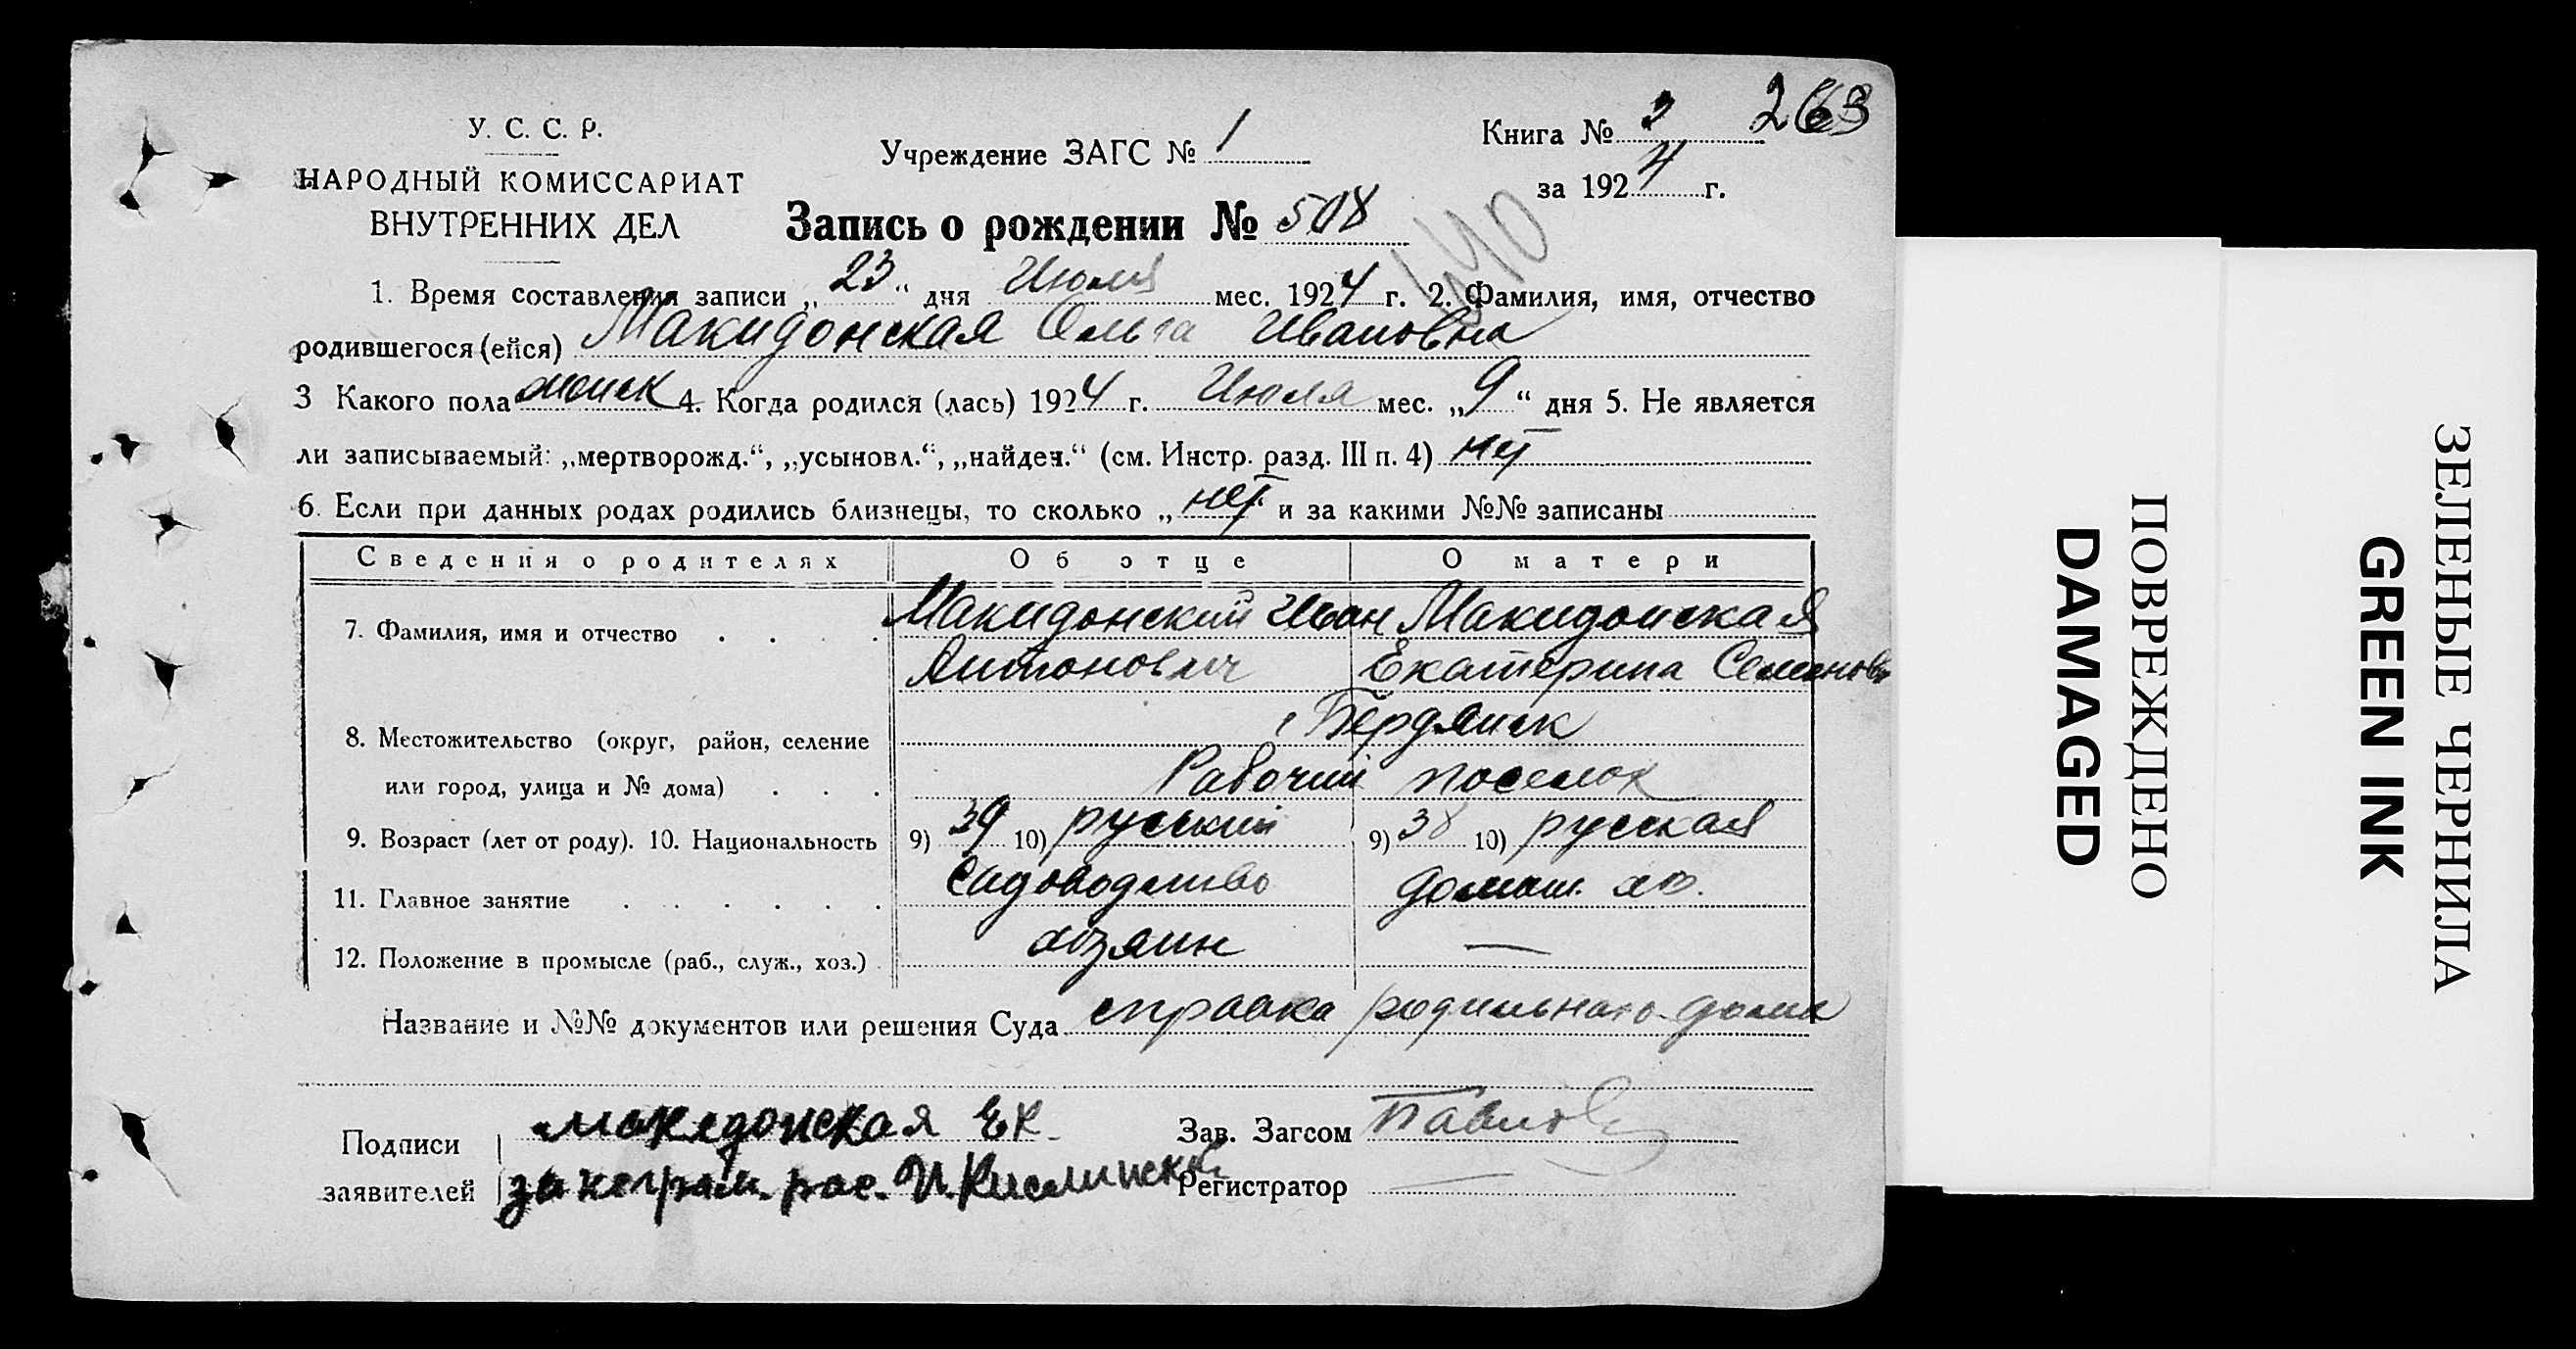 263
У. С. С. Р.
НАРОДНЫЙ КОМИССАРИАТ
ВНУТРЕННИХ ДЕЛ
Учреждение ЗАГС № 1
Книга № 2
за 1924 г.
Запись о рождении № 508
1. Время составления записи „23“ дня Июля мес. 1924 г. 2. Фамилия, имя, отчество
родившегося (ейся) Македонская Ольга Ивановна
3 Какого пола женск 4. Когда родился (лась) 1924 г. Июля мес. „9“ дня 5. Не является
ли записываемый: „мертворожд.“, „усыновл.“, „найден.“ (см. Инстр. разд. III п. 4) нет
6. Если при данных родах родились близнецы, то сколько „ нет и за какими №№ записаны
Сведения о родителях Об отце О матери
7. Фамилия, имя и отчество Макидонский Иван Макидонская
Антонович Екатерина Семенов
8. Местожительство (округ, район, селение Бердянск
или город, улица и № дома) Рабочий поселок
9. Возраст (лет от роду). 10. Национальность 9) 39 10) русский 9) 38 10) русская
11. Главное занятие Садоводство домаш. хоз.
12. Положение в промысле (раб., служ., хоз.) хозяин —
Название и №№ документов или решения Суда справка родильного дома
Подписи македонская Ек.
заявителей за неграм. рос.
Зав. Загсом Павлов
Регистратор —
ПОВРЕЖДЕНО
DAMAGED
ЗЕЛЕНЫЕ ЧЕРНИЛА
GREEN INK